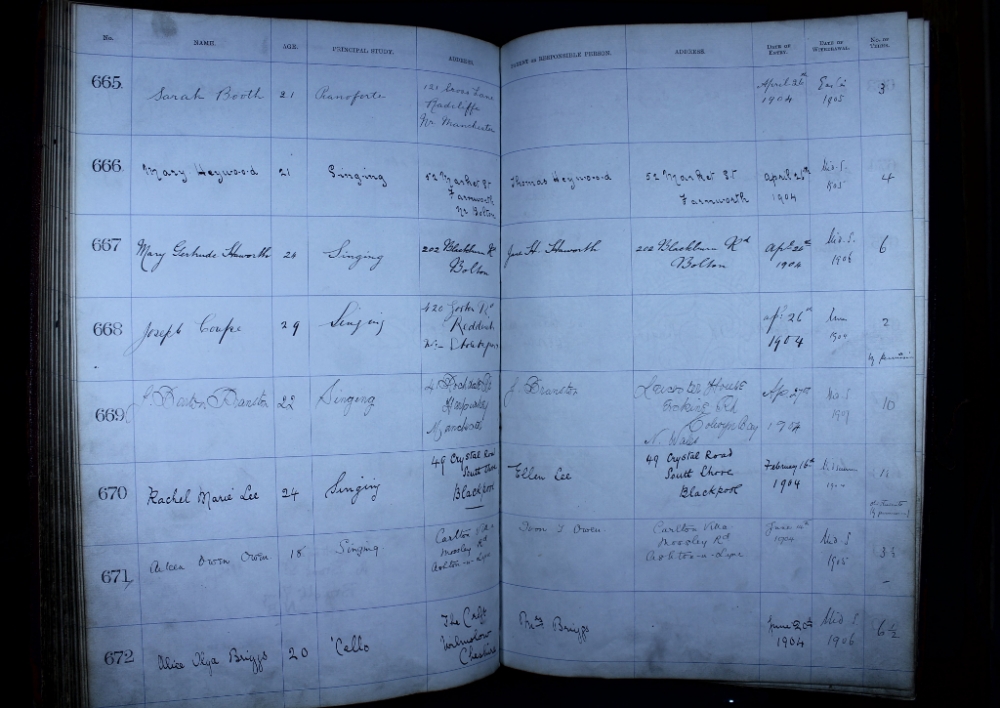 No. NAME. AGE. PRINCIPAL STUDY. ADDRESS. PARENT OR RESPONSIBLE PERSON. ADDRESS. DATE OF ENTRY. DATE OF WITHDRAWAL. NO. OF TERMS.
665 Sarah Booth 21 Pianoforte April 26th 3
121 Cross Lane
Radcliffe
Nr Manchester
1904 1905
666 Mary Heywood 21 Singing 52 Market St Thomas Heywood 52 Market St April 26th Mid. S. 4
Farnworth Farnworth 1904 1905
Nr Bolton
667 Mary Gertrude Haworth 24 Singing 202 Blackburn Rd H. Haworth 202 Blackburn Rd Apl. 26th Mid. S. 6
Bolton Bolton 1904 1906
668 Joseph Coupe 29 Singing 420 Rd apl 26th 2
Reddish 1904 1904
Nr Stockport
669 Branston 22 Singing J Branston Leicester House Apr. 27th Mid. S 10
Erskine Rd
Manchester Colwyn Bay 1904 1907
N. Wales
670 Rachel Marie Lee 24 Singing 49 Crystal Road Ellen Lee 49 Crystal Road February 16th
South Shore South Shore 1904
Blackpool Blackpool
671 Owen Owen 18 Singing Carlton Villa Owen Carlton Villa June Mid. S 3½
Mossley Rd Mossley Rd 1904 1905
Ashton-u-Lyne Ashton-u-Lyne
672 Alice Olga Briggs 20 'Cello The Croft Mrs Briggs June 20th Mid S. 6½
Wilmslow 1904 1906
Cheshire